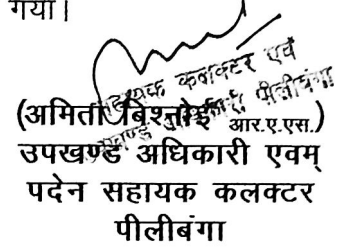 गया।
सहायक कलक्टर एवं
उपखण्ड अधिकारी पीलीबंगा
(अमिता बिश्नोई आर.ए.एस.)
उपखण्ड अधिकारी एवम्
पदेन सहायक कलक्टर
पीलीबंगा